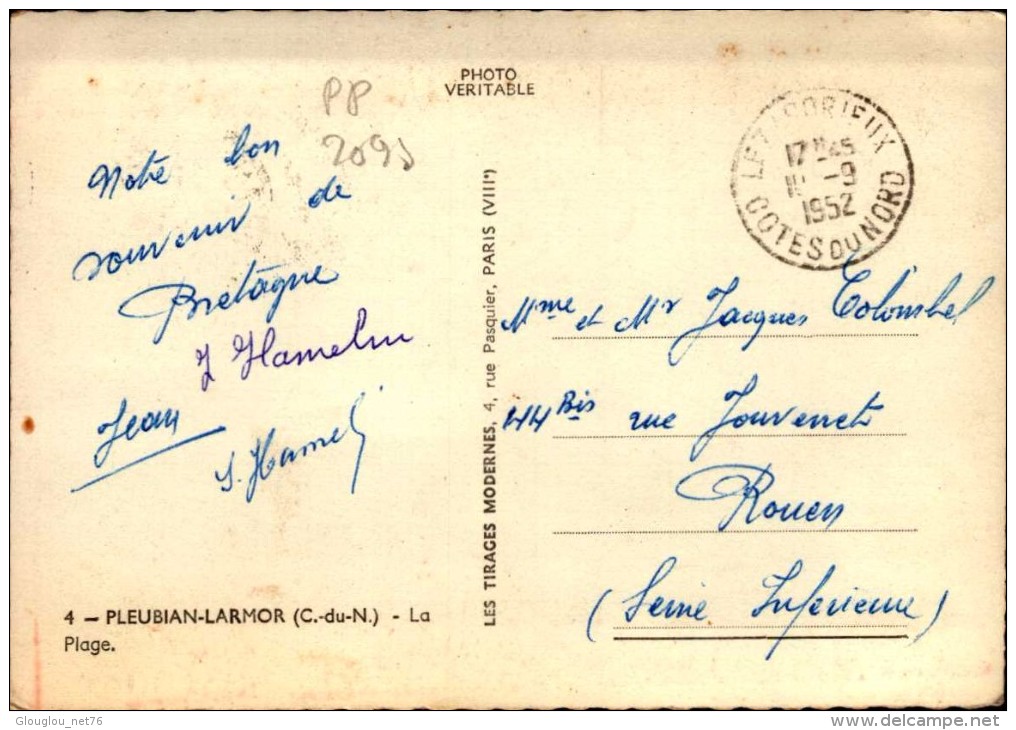 PHOTO
VERITABLE
PP
2095
Notre bon
souvenir de
Bretagne
J Hamelin
Jean
S. Hamel
4 — PLEUBIAN-LARMOR (C.-du-N.) - La
Plage.
LES TIRAGES MODERNES, 4, rue Pasquier, PARIS (VIIIe)
LEZARDRIEUX
17H45
-9
1952
COTES DU NORD
Mme et Mr Jacques Colombel
44 Bis rue Jouvenet
Rouen
(Seine Inferieure)
Glouglou_net76
delcampe.net